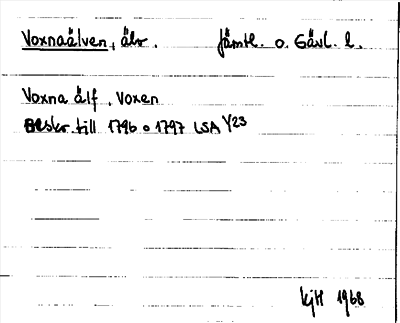 Voxnaälven, älv. Jämtl. o. Gävl. l.
Voxna älf, Voxen
Beskr. till 1796 o 1797 LSA Y23
kjH 1968